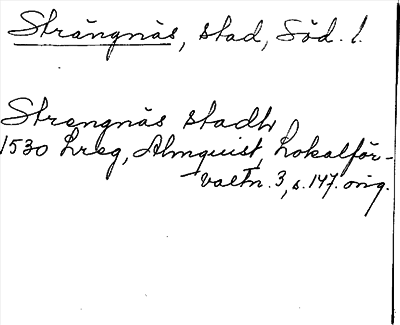 Strängnäs, stad, Söd. l.
Strengnäs stadh
1530 Lreg, Almquist, Lokalför-
valtn. 3, s. 147. orig.